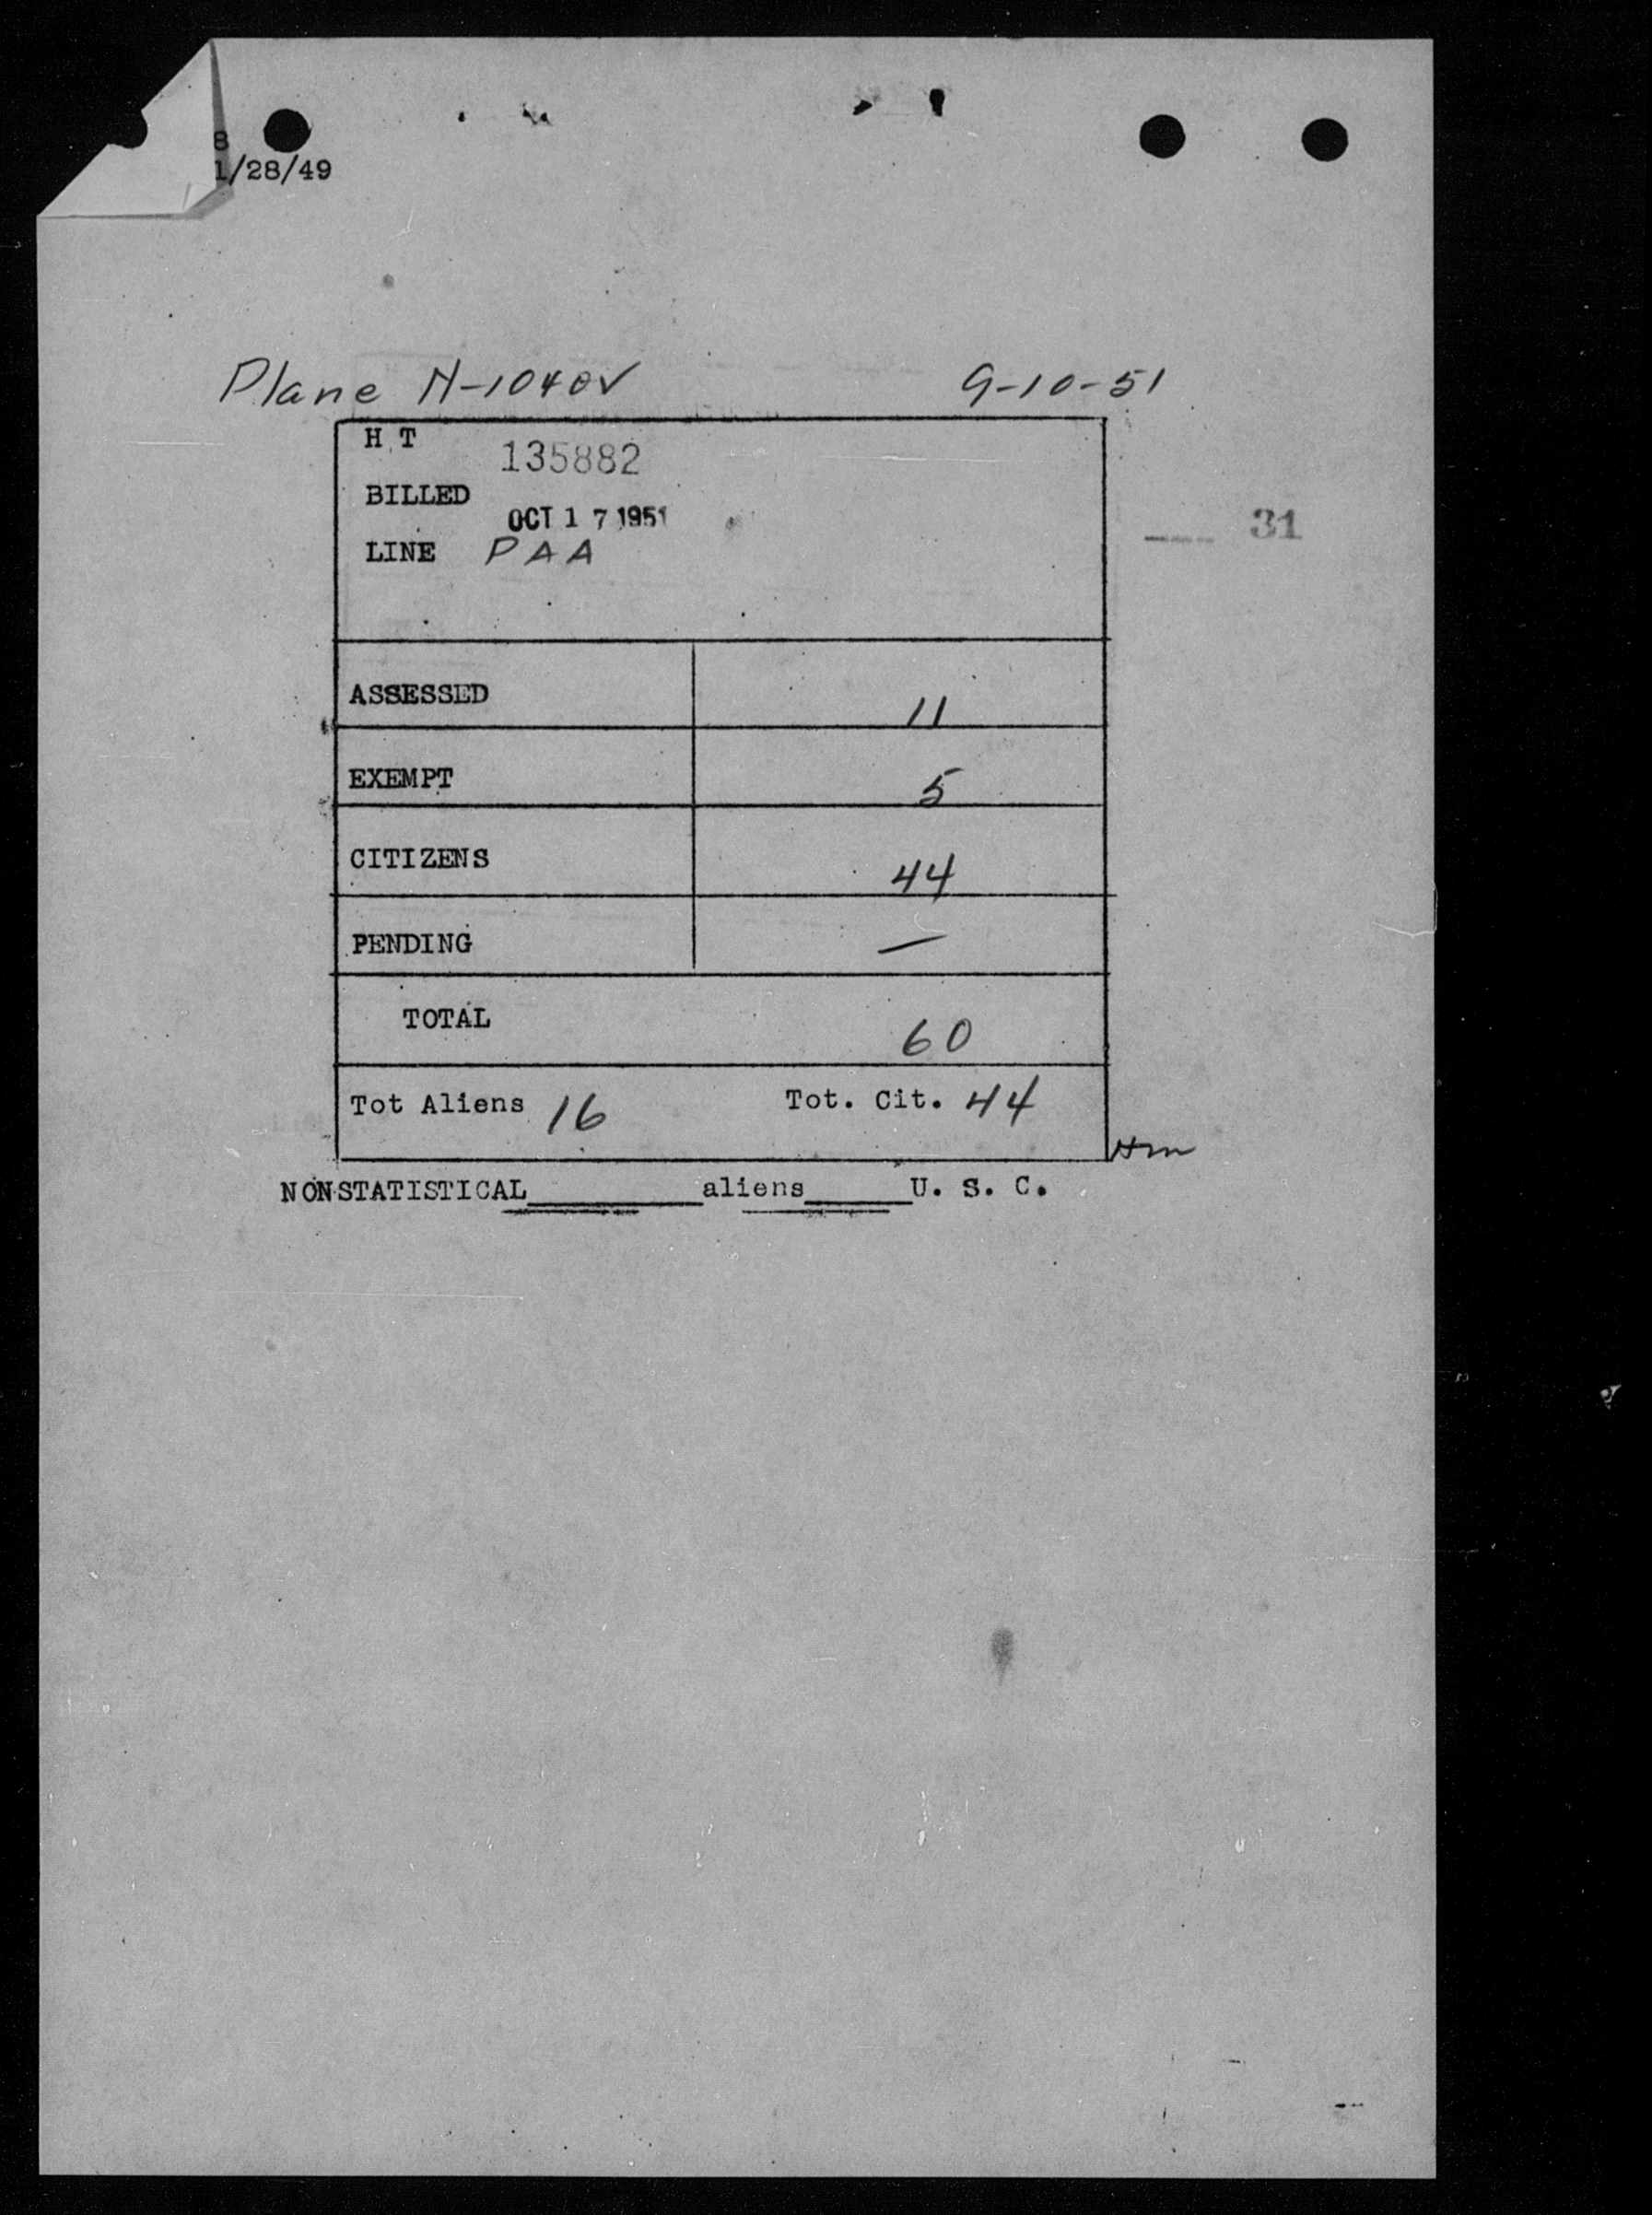 8
1/28/49
Plane N-1040V 9-10-51
H T 135882
BILLED OCT 17 1951
LINE PAA
31
ASSESSED 11
EXEMPT 5
CITIZENS 44
PENDING —
TOTAL 60
Tot Aliens 16 Tot. Cit. 44
Hm
NONSTATISTICAL________aliens_____U. S. C.